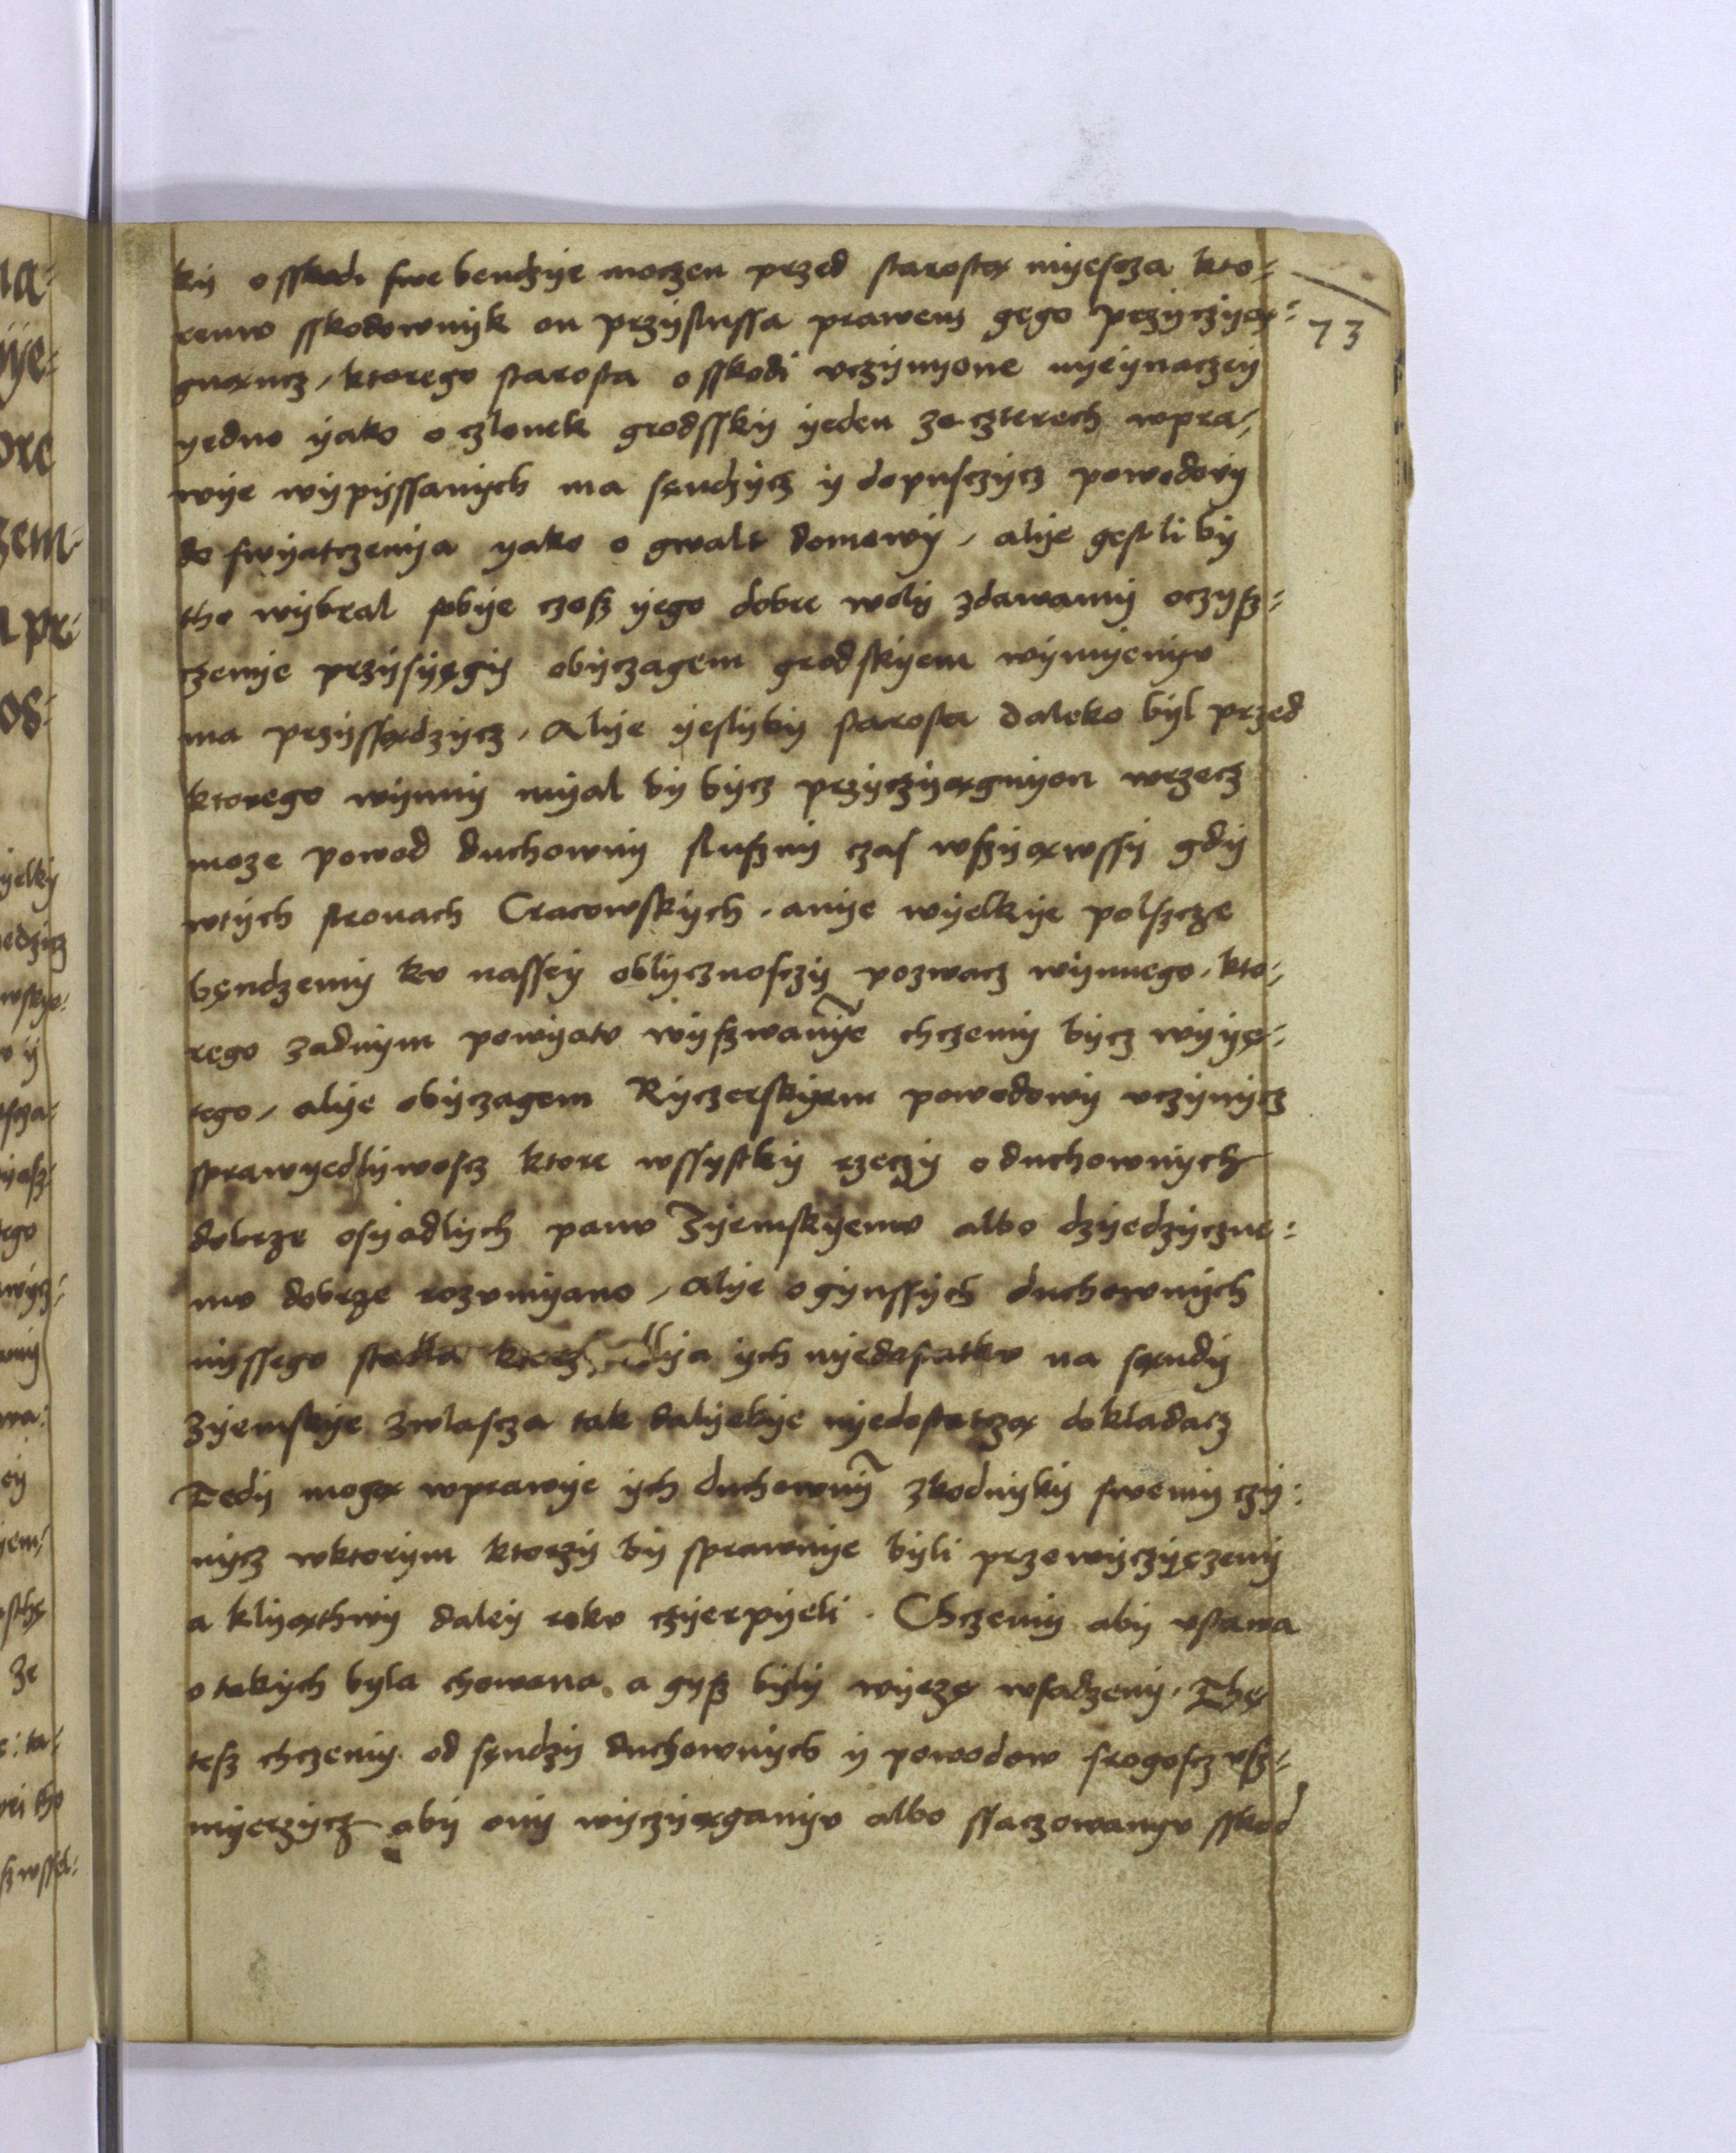 ky o sskodi swe bendzye moczen przed starostą myescza kto-
remv sskodownyk on przyslussa prawem gego przyczyą-
gnąncz, ktorego starosta o sskodi vczynyone nyeynaczey
yedno yako o czlonek grodssky yeden ze czterech wpra-
wye wypyssanych ma sęndzycz y dopusczycz powodovy
do swyatczenya yako o gwalt domowy, alye gestli by
tho wybral sobye czosz yego dobre woly zdawamy oczysz-
czenye przysyęgy obyczagem grodskyem wymyenyv
ma przyssądzycz. Alye yeslyby starosta daleko byl przed
ktorego wynny myal by bycz przyczyągnyon wrzecz
moze powod duchowny slusny czas wszyąwssy gdy
wtych stronach Cracowskych. anye wyelkye polszcze
bęndzemy kv nassey oblycznosczy pozwacz wynnego. kto-
rego zadnym powyatv wyszwanye chczemy bycz wyyę-
tego, alye obyczagem Ryczerskyem powodowy vczynycz
sprawyedlywoscz ktore wssystky rzeczy o duchownych
dobrze osyadlych panv Zyemskyemv albo dzyedzyczne-
mv dobrze rozvmyano, alye o gynssych duchownych
nyssego stadla ktorz dlya ych nyedosatkv na sąndy
zyemskye zwlascza tak dalyekye nyedostatczą dokladacz
Tedy mogą wprawye ych duchowny zkodnyky swemy czy-
nycz wktorym ktorzy by sprawnye byli przewyczyęzeny
a klyąthwy daley rokv czyerpyeli. Chczemy aby vstawa
o takych byla chowana. a gysz byly wyezę wsadzeny. Thę
tesz chczemy od sęndzy duchownych y powodow srogoscz vsz-
myerzycz aby ony wyczyąganyv albo ssaczowanyv sskod
73